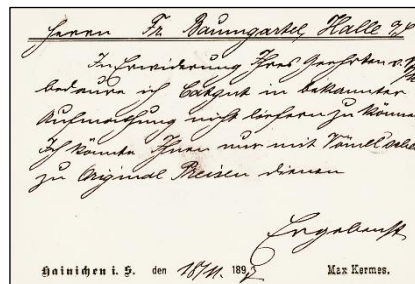 Herrn Fr. Baumgartel, Halle a/S
In Erwiderung Ihres Geehrten v.
bedaure ich Catgut in bekannter
Aufmachung nicht liefern zu können
Ich könnte Ihnen nur mit
zu Original Preisen dienen
Ergebenst
Hainichen i. S. den 18/11. 1892 Max Kermes.